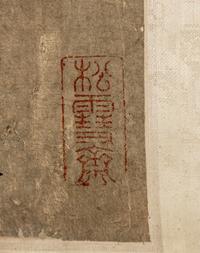 松雪齋